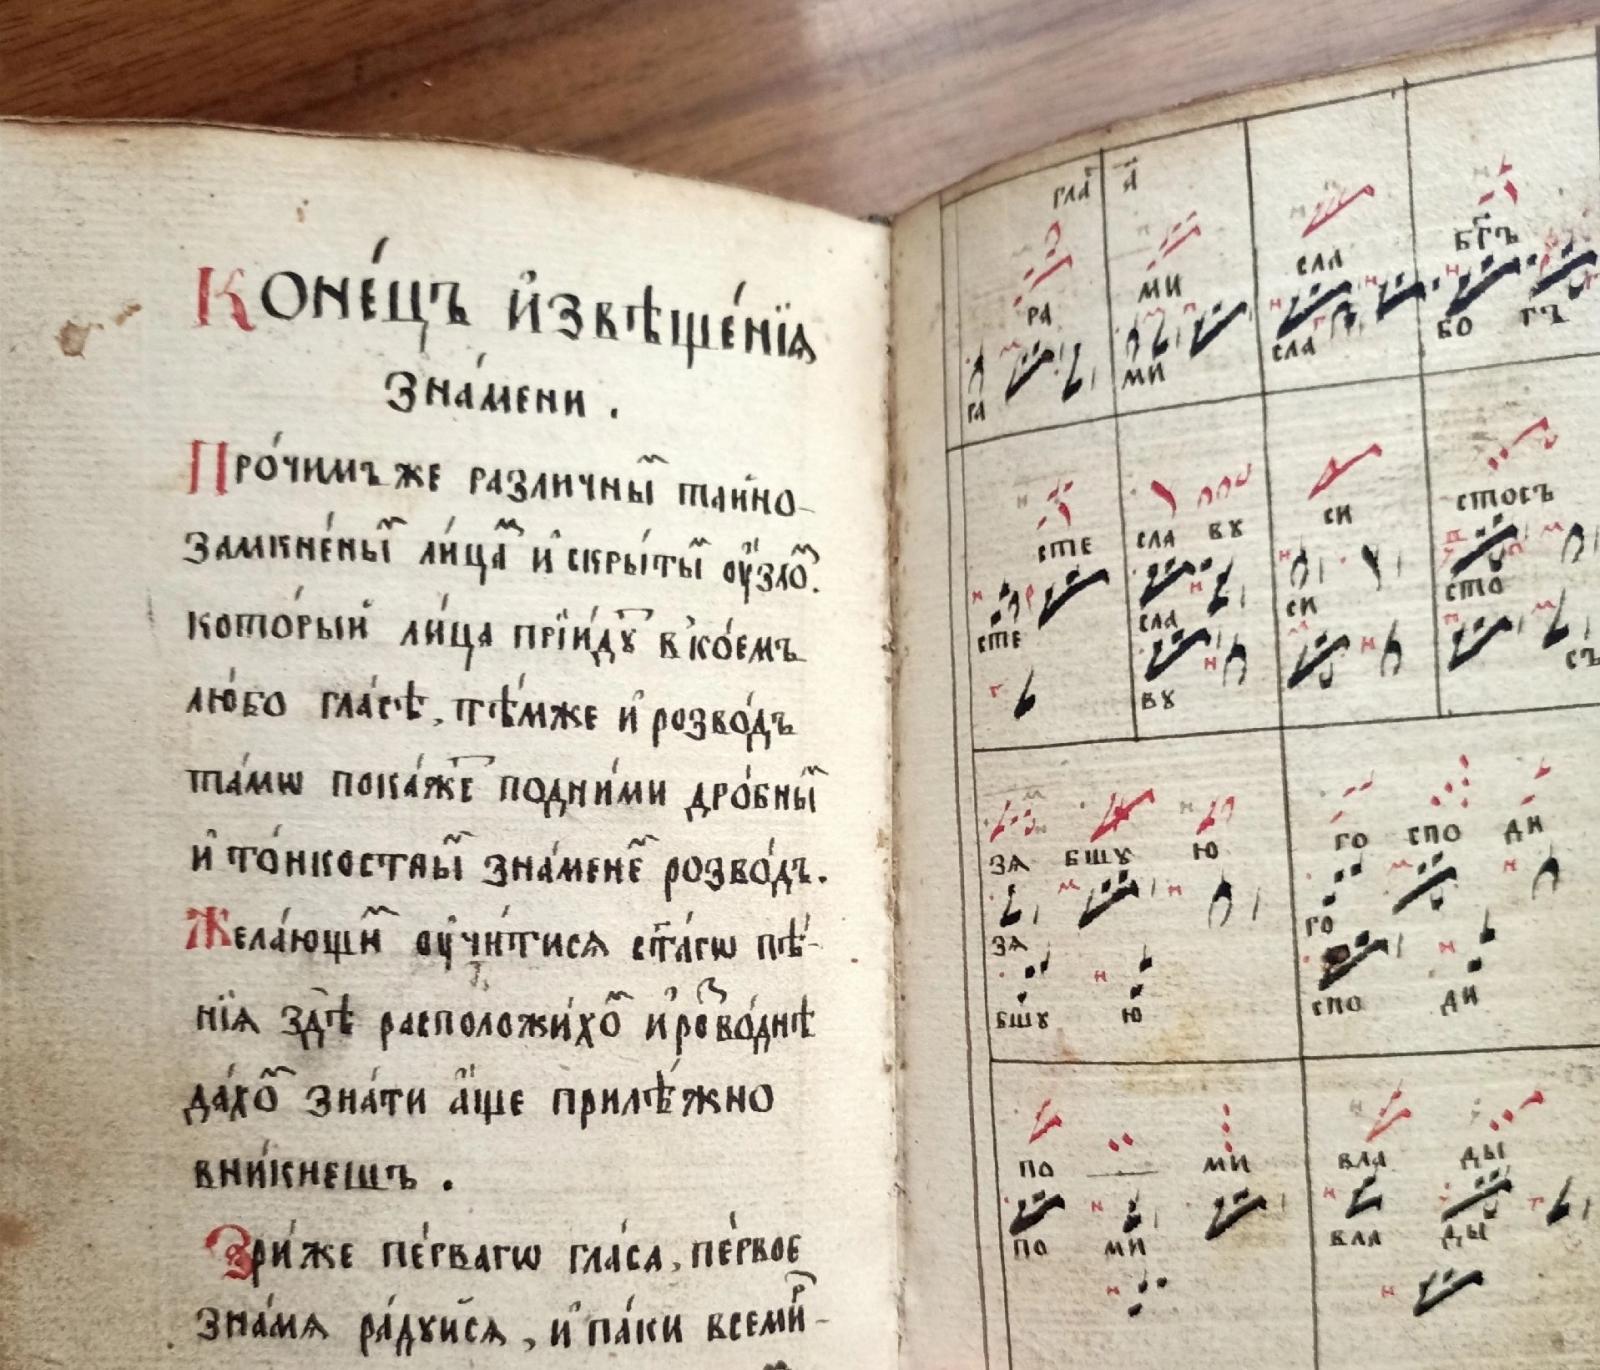 Коне́цъ и҆звѣще́нїѧ
зна́мени .
Про́чимъ же различны̑ⷨ таино-
замкне́ныⷨ ли́цаⷨ и҆ скры́тыⷨ ᲂу҆зло́ⷨ.
кото́рый ли́ца прїи́дꙋⷮ в ко́емъ
лю́бо гла́сѣ, тѣ́мже и҆ розво́дъ
та́мѡ пока́жеⷮ подни́ми дро́бныⷨ
и҆ то́нкостныⷨ зна́менеⷨ розво́дъ.
Жела́ющиⷨ ᲂу҆чи́тисѧ ст҃а́гѡ пѣ́-
нїѧ здѣ̀ расположи́хоⷨ и҆ роⷥво́днѣ
да́хоⷨ зна́ти а҆́ще прилѣ́жно
вни́кнешъ .
Зри́же пе́рвагѡ гла́са, пе́рвое
зна́мѧ ра́дꙋйсѧ, и҆ па́ки всеми́ⷬ-
глаⷭ҇ а҃
ра ми сла бг҃ъ
га ми сла бо гъ
сте сла вꙋ си стосъ
сте сла вꙋ си сто съ
зѧ бшꙋ ю го спо ди
зѧ бшꙋ ю го спо ди
по ми вла ды
по ми вла ды